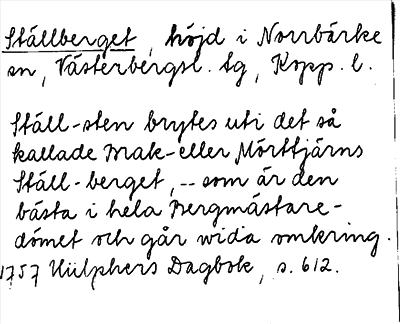 Ställberget, höjd i Norrbärke
sn, Västerbergsl. tg, Kopp. l.
Ställ-sten brytes uti det så
kallade Mak- eller Mörttjärns
Ställ-berget, -- som är den
bästa i hela Bergmästare-
dömet och går wida omkring.
1757 Hülphers Dagbok, s. 612.